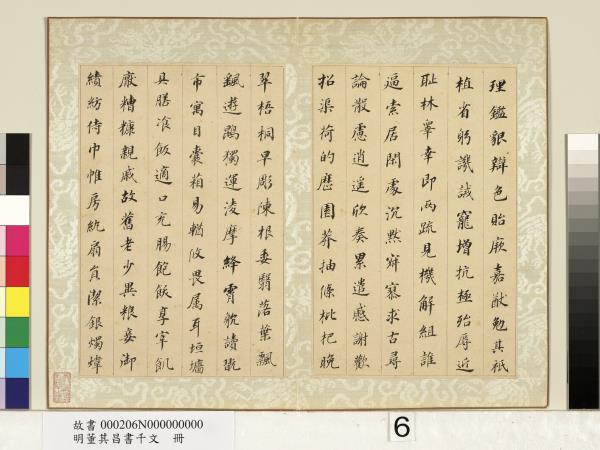 理鑑貌辯色貽厥嘉猷勉其祗
植省躬譏誡寵增抗極殆辱近
耻林睪幸即兩疏見機解組誰
逼索居閑處沉默寂寥求古尋
論散慮逍遙欣奏累遣慼謝歡
招渠荷的歷園莽抽條枇杷晚
翠梧桐早彫陳根委翳落葉飄
颻遊鵾獨運淩摩絳霄躭讀翫
市寓目囊箱易輶攸畏属耳垣墻
具膳飡飯適口充腸飽飫享宰飢
厭糟糠親戚故舊老少異粮妾御
績紡侍巾帷房紈扇員潔銀燭煒
故書 000206N000000000
明董其昌書千文 冊
6